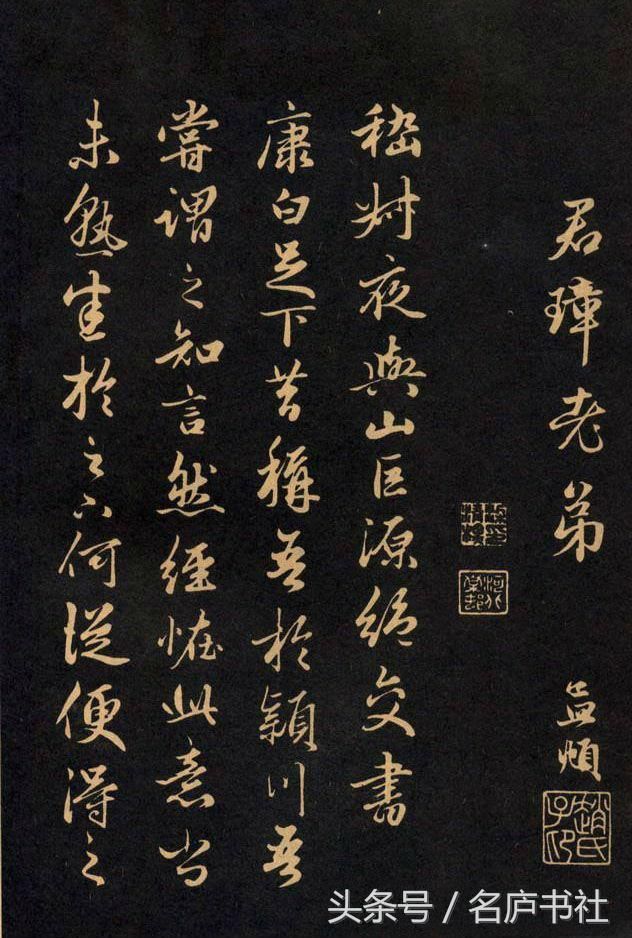 君璋老弟
孟頫
趙氏子昂
河北棠村
嵇叔夜與山巨源絕交書
康白足下昔稱吾於穎川吾
嘗謂之知言然經恠此意尚
未熟悉於足下何從便得之
头条号 / 名庐书社